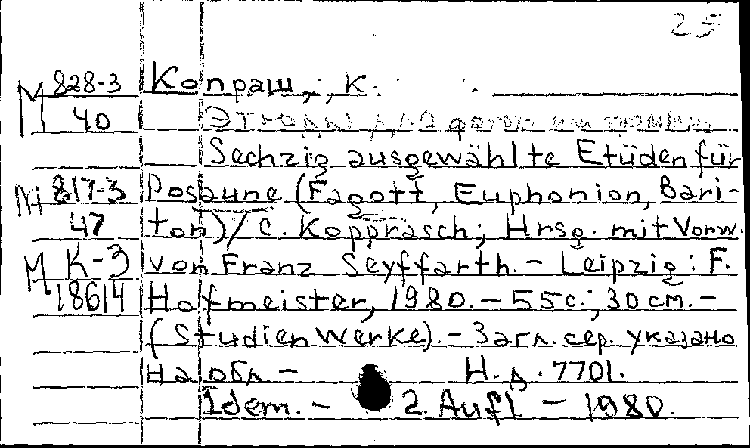 25
М 828-3 Копраш, К.
40 Этюды для
Sechzig ausgewählte Etüden für
М 817-3 Posaune (Fagott, Euphonion, Bari-
47 ton) / C. Kopprasch; Hrsg. mit Vorw.
М К-3 von Franz Seyffarth. – Leipzig: F.
18614 Hofmeister, 1980. – 55 с.; 30 см. –
(Studienwerke). – Загл. сер. указано
на обл. – Н.д. 7701.
Idem. – 2. Aufl. – 1980.